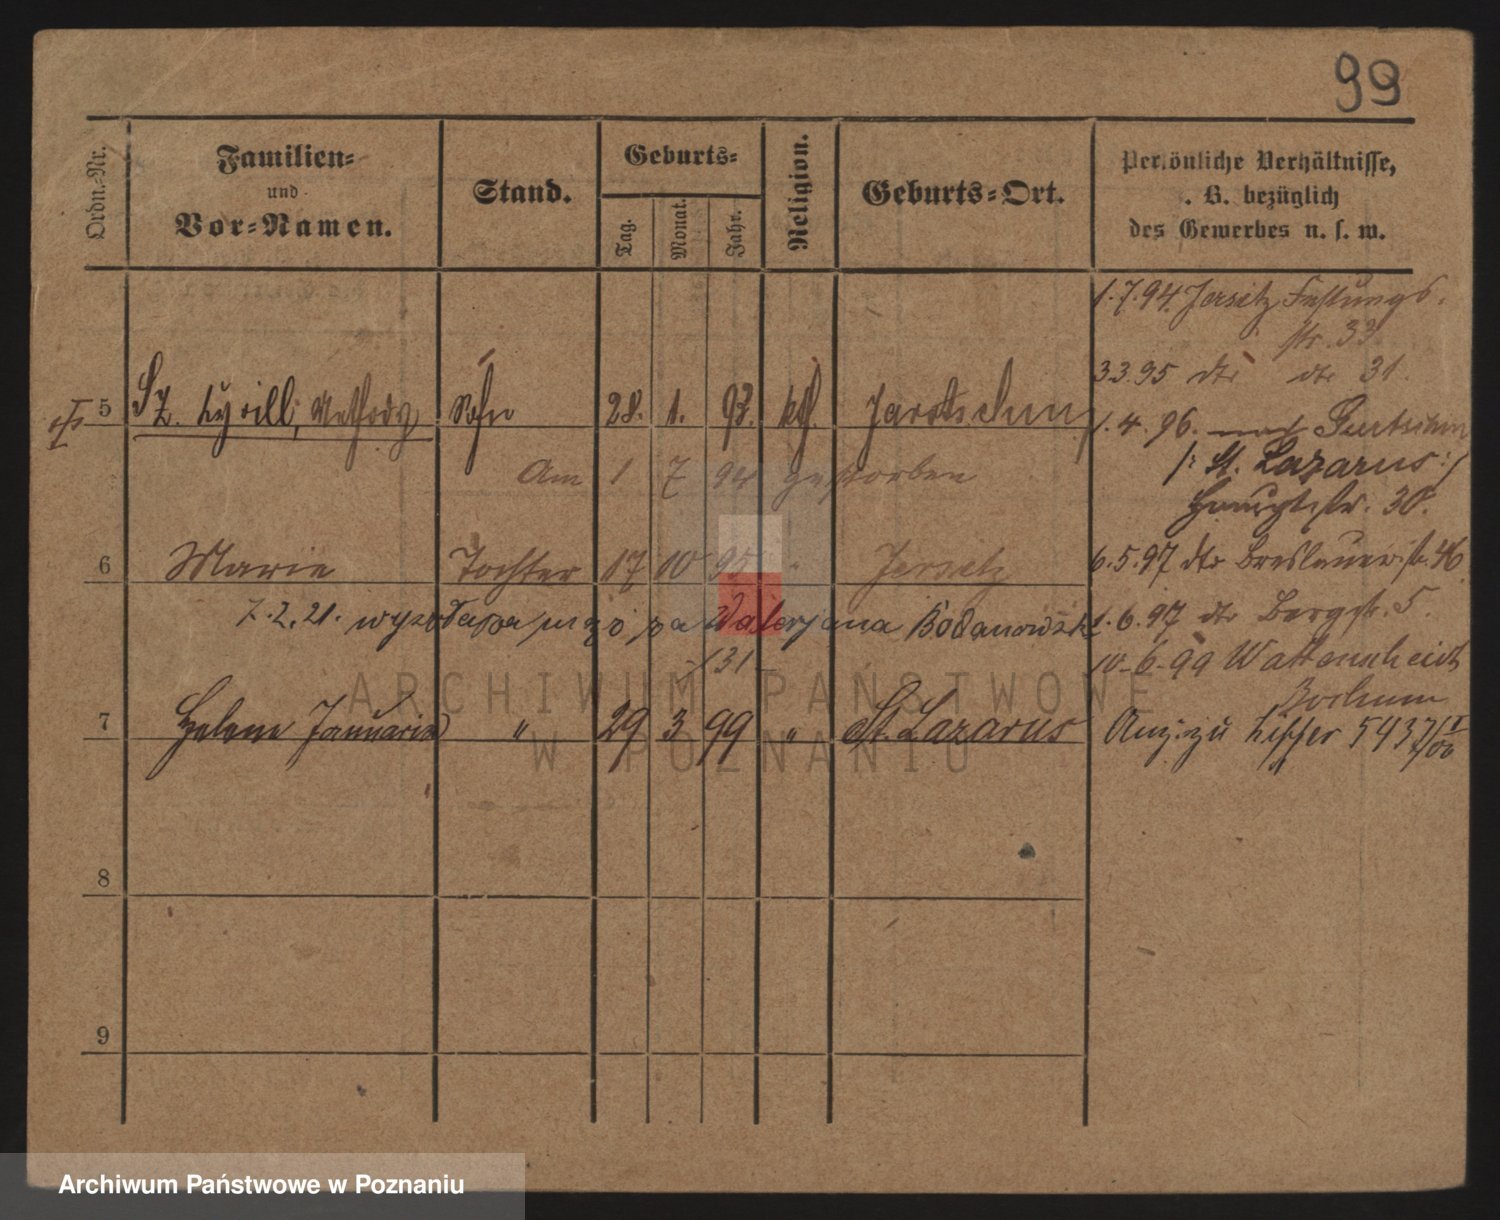 99
Ordn.-Nr.
Familien-
und
Vor-Namen.
Stand.
Geburts-
Tag.
Monat.
Jahr.
Religion.
Geburts-Ort.
Persönliche Verhältnisse,
. B. bezüglich
des Gewerbes u. s. w.
1.7.94. Jersitz Festungs-
str. 33
3.3.95 dto dto 31.
5 Sz. Cyrill, Methody Sohn 28. 1. 93. kth. Jarotschin
Am 1 7 94 gestorben
1.4.96. nach Gurtschin
/: St. Lazarus :/
Hauptstr. 30.
6 Marie Tochter 17 10 95 " Jersitz
6.5.97 dto Breslauerstr. 46
7.2.21. wyszła za mąż za Waleryana Bodanowski
131
1.6.97 dto Bergstr. 5
10.6.99 Wattenscheid
Bochum
7 Helene Januaria " 29 3 99 " St. Lazarus
Anz. zu Ziffer 5437/00
8
9
ARCHIWUM PAŃSTWOWE
W POZNANIU
Archiwum Państwowe w Poznaniu